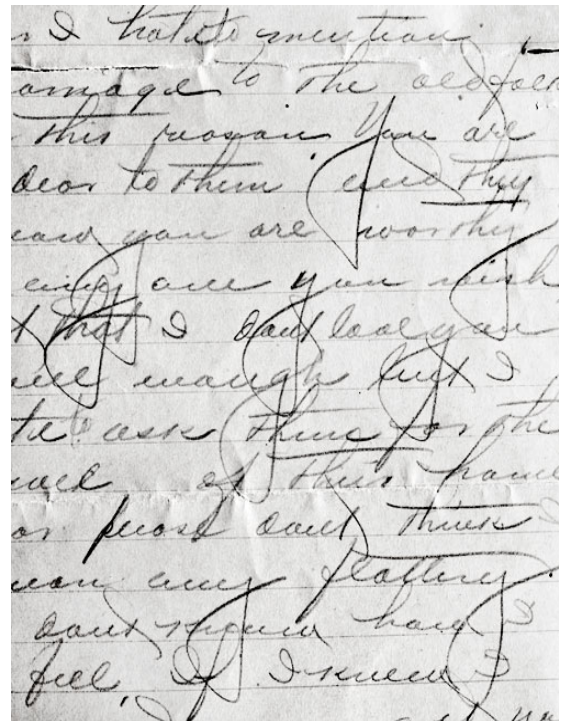 I hate to mention
to the old folk
this reason You are
dear to them and they
you are worthy
any one you wish
that I dont love you
enough but I
ask them for the
of their home
or please dont think I
any flattery
dont know how I
feel, If I knew I